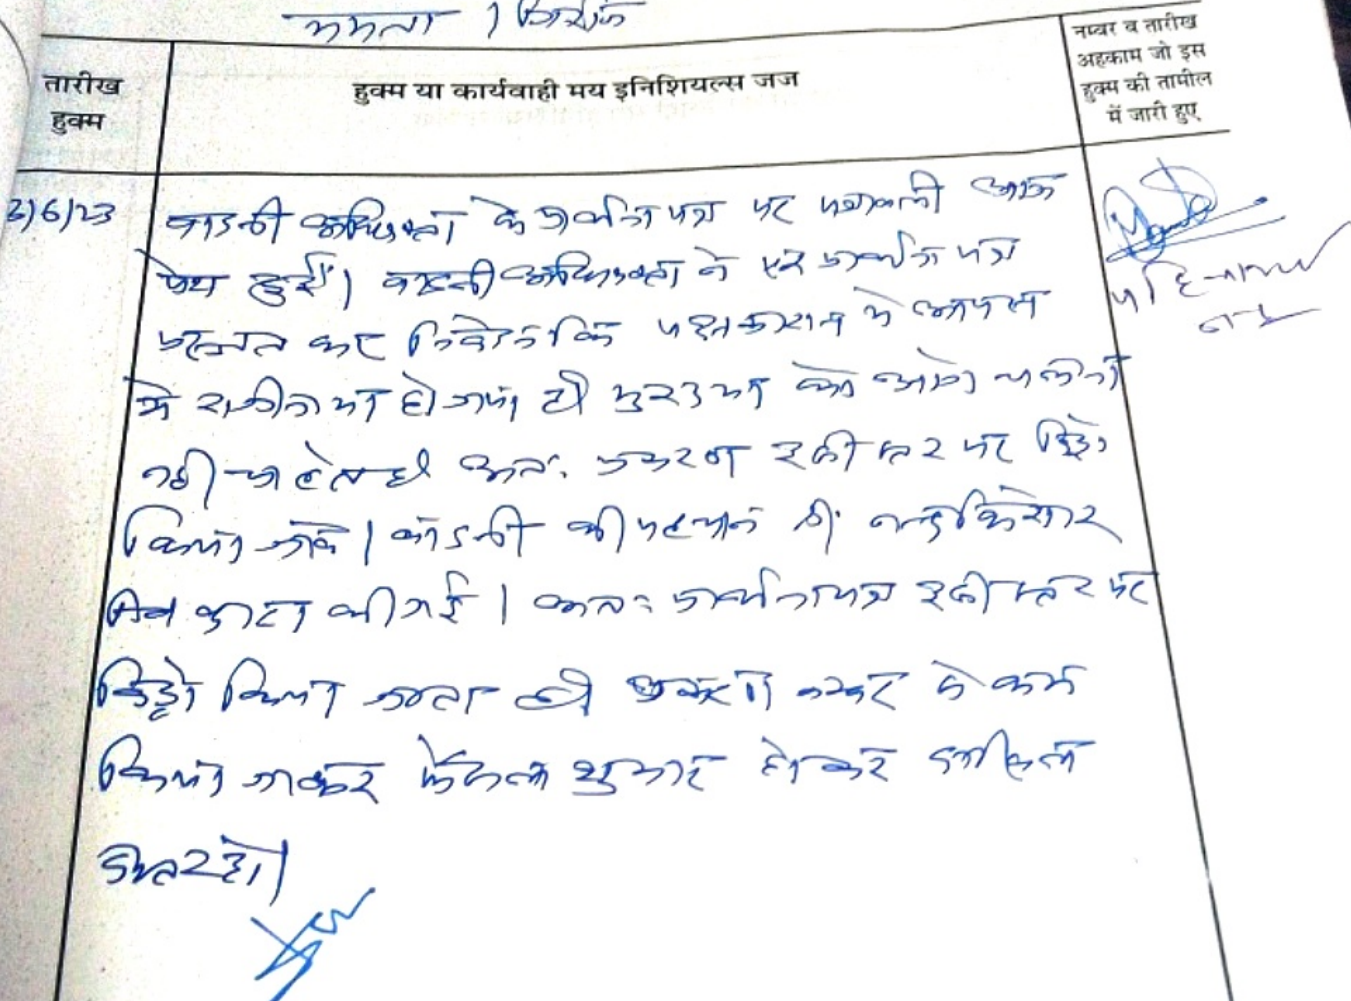 ममता /
तारीख
हुक्म
हुक्म या कार्यवाही मय इनिशियल्स जज
नम्बर व तारीख
अहकाम जो इस
हुक्म की तामील
में जारी हुए
3/6/23
के प्रार्थना पत्र पर पत्रावली आज
पेश हुई। ने एक प्रार्थना पत्र
प्रस्तुत कर निवेदन कि पक्षकारान के आपस
मे राजीनामा हो गया है। मुकदमा को आगे चलाना
नही चाहते है अतः प्रकरण इसी स्तर पर विड्रो
किया जावे। की पहचान श्री नन्दकिशोर
की गई। अतः प्रार्थनापत्र इसी स्तर पर
विड्रो किया जाता है। प्रकरण नम्बर से कम
किया जाकर फैसल शुमार होकर दाखिल
दफ्तर हो।